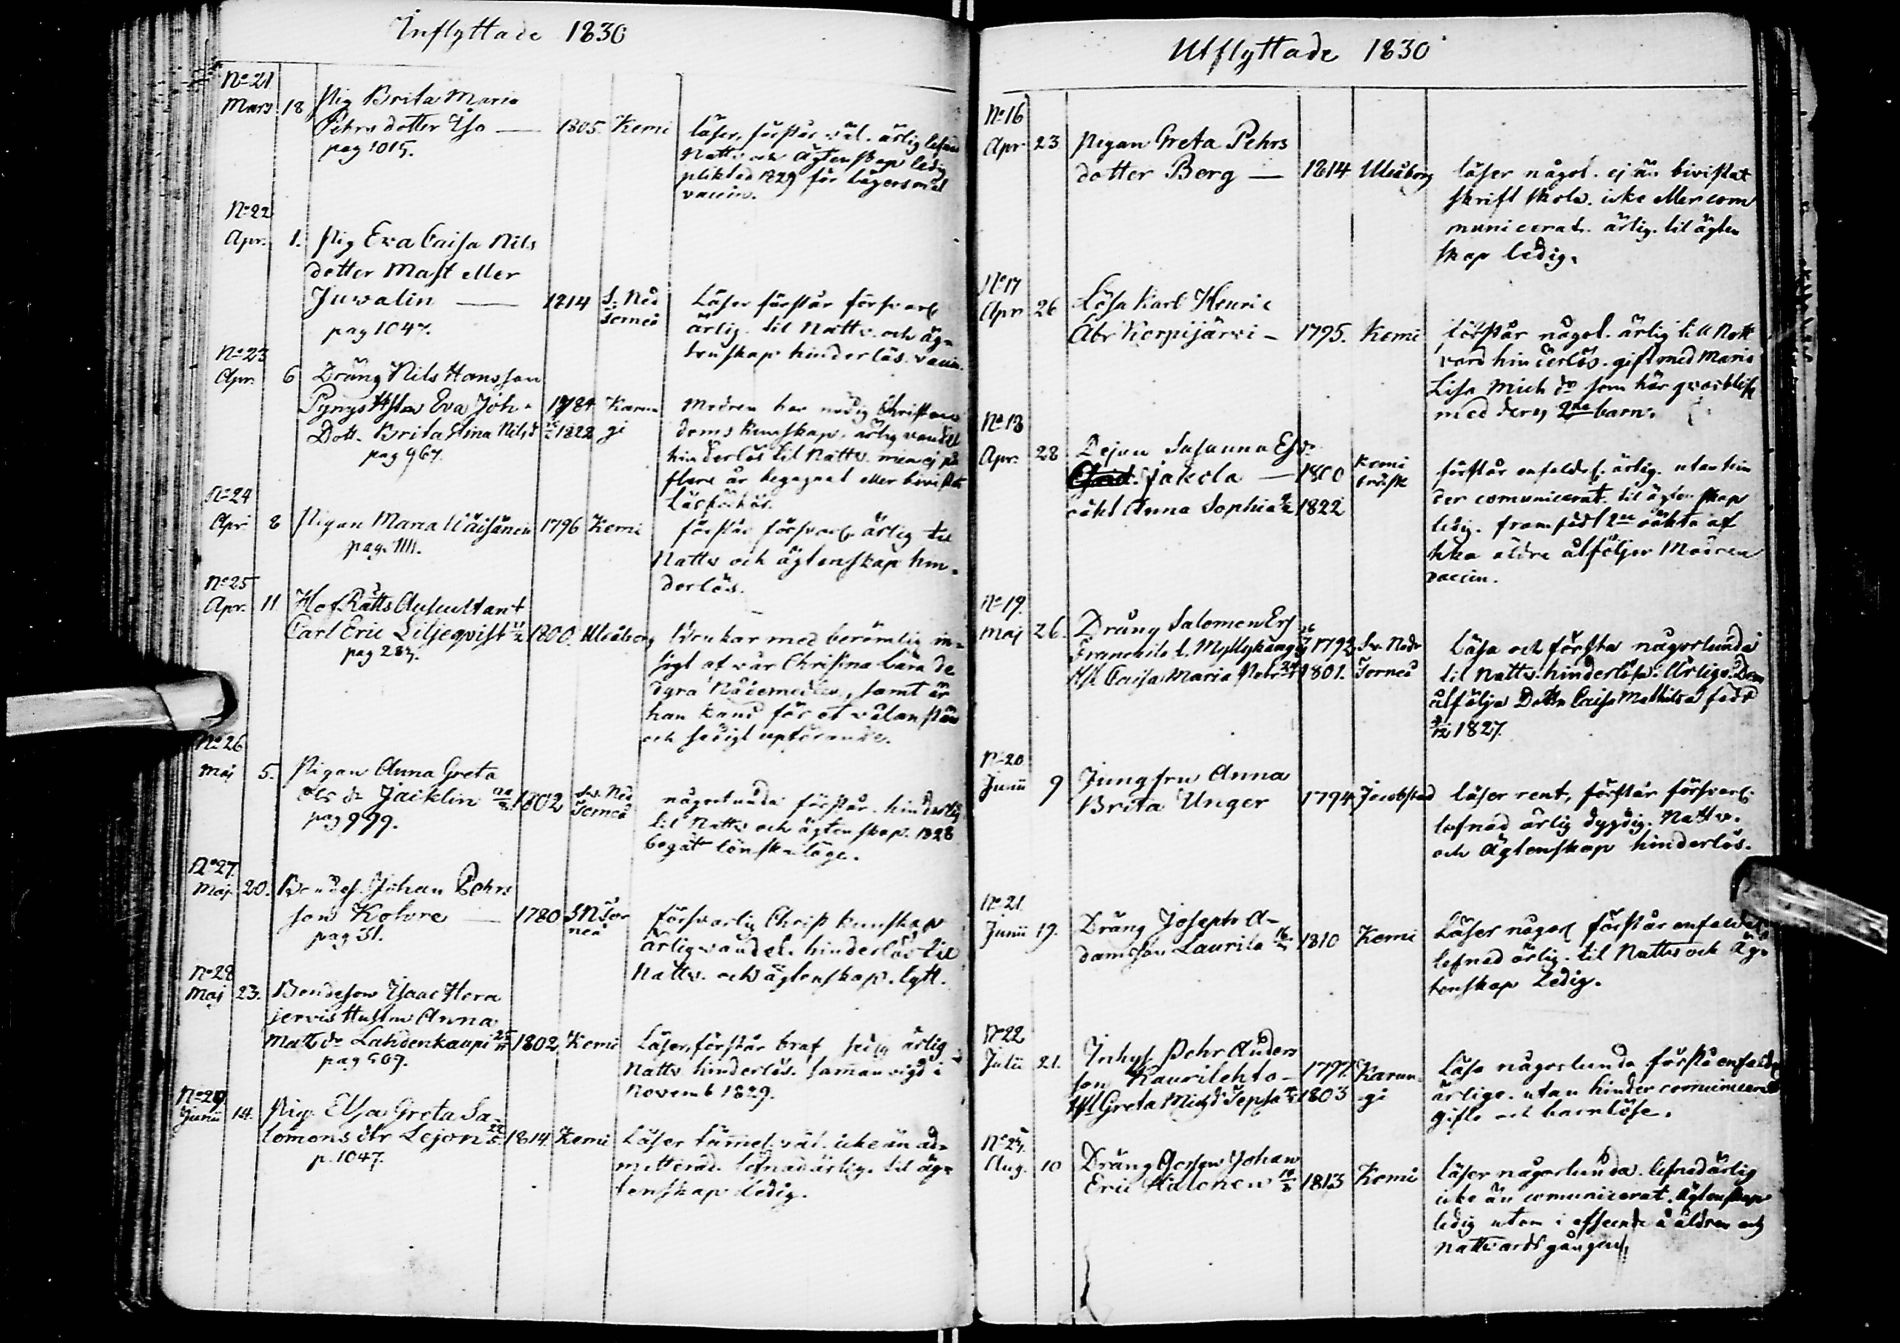 Inflyttade 1830
No 21
Mars 18 Pig Brita Maria
Pehrs dotter Iso — 1805. Kemi
pag 1015.
läser, förstår väl. ärlig
Nattv. och Ägtenskap ledig
pliktad 1829 för Lägersmål
vaccin.
No 22
Apr. 1. Pig Eva Caisa Nils
dotter Mast eller
Juvalin — 1814 S. Ned Torneå
pag 1047.
Läser förstår försvarl
ärlig. til Nattv. och äg-
tenskap hinderlös. vaccin.
No 23
Apr. 6 Dräng Nils Hansson
Eva Joh. 1784 Karun
Dott. Brita Stina Nilsd 1828 gi
pag 967.
Modren har nödig Christen
doms kunskap, ärlig vandel
hinderlös til Nattv. men ej på
flere år begagnat eller bivistat
Läsförhör.
No 24
Apr 8 Pigan Maria Wäisänen 1796 Kemi
pag. 1111.
förstår försvarl. ärlig til
Nattv och ägtenskap hin-
derlös.
No 25
Apr. 11 HofRätts Auscultant
Carl Eric Liljeqvist 1800. Uleåborg
pag 283.
med berömlig in-
sigt af vår Christna Lära de
dyra Nådemedlen, samt är
han känd för et välanstän
och sedigt uppförande.
No 26
Maj 5. Pigan Anna Greta
Ols dr Jacklin 1802 Sv. Ned Torneå
pag 999.
någorlunda förstår. hinderlös
til Nattv och ägtenskap. 1828
begått lönskaläge.
No 27.
Maj 20. Bondes. Johan Pehrs
son Kohvre — 1780 S N Tor
neå
pag 31.
försvarlig Christ kunskap
ärlig vandel. hinderlös til
Nattv. och ägtenskap. lytt.
No 28
Maj 23. Bondeson Isaac Hera
jervis Hustru Anna
Matts dr Lahdenkaupi 1802 Kemi
pag 509.
Läser, förstår bra, sedig ärlig
Nattv. hinderlös. samanvigd i
Novemb 1829.
No 29
Junii 14. Pig. Elsa Greta Sa-
lomons dtr Lejon 1814 Kemi
p. 1047.
Läser tämmel. väl. icke än ad-
mitterad. lefnad ärlig. til äg-
tenskap ledig.
Utflyttade 1830
No 16
Apr 23 Pigan Greta Pehrs
dotter Berg — 1814 Uleåborg
läser någol. ej än bivistat
skriftskola. icke eller com
municerat. ärlig. til ägten
skap ledig.
No 17
Apr 26 Lösa Karl Henric
Abr Korpijärvi — 1795. Kemi
förstår någol. ärlig till Natt
vard hinderlös. gift med Maria
Lisa Mich dr som här qvarblif
med deras 2ne barn.
No 18
Apr. 28 Pejan Susanna Es dr
Jakola — 1800 Kemi träsk
oäkt Anna Sophia 1822
förstår enfaldl. ärlig. utan hin
der comunicerat. til ägtenskap
ledig. framfödt 2ne oäkta af
hka äldre åtföljer Modren
vaccin.
No 19.
Maj 26. Dräng Salomon Ers
Franchila l. Myllykangas 1792 Sv. Nedr
Hst Caisa Maria 1801. Torneå
Läsa och förstå någorlunda
til Nattv. hinderlösa. Ärliga. Dem
åtfölja Dottr Caisa Mathilda född
1827.
No 20
Junii 9 Jungfru Anna
Brita Unger 1794 Jacobstad
läser rent, förstår försvarl.
lefnad ärlig dygdig. Nattv.
och Ägtenskap hinderlös.
No 21
Junii 19. Dräng Joseph A-
damsson Laurila 1810 Kemi
Läser någol förstår enfaldl.
lefnad ärlig. til Nattv och Äg-
tenskap Ledig.
No 22
Julii 21. Inhys Pehr Anders
son Kaurilehto — 1797 Karun-
Hst Greta Michsd Seppä 1803 gi
Läsa någorlunda förstå enfaldl
ärliga. utan hinder comunicerat
gifte och barnlöse.
No 23.
Aug. 10 Dräng Gossen Johan
Eric Halonen 1813 Kemi
läser någorlunda. lefnad ärlig
icke än comunicerat. Ägtenskap
ledig utom i afseende å åldren och
Nattvardsgången.